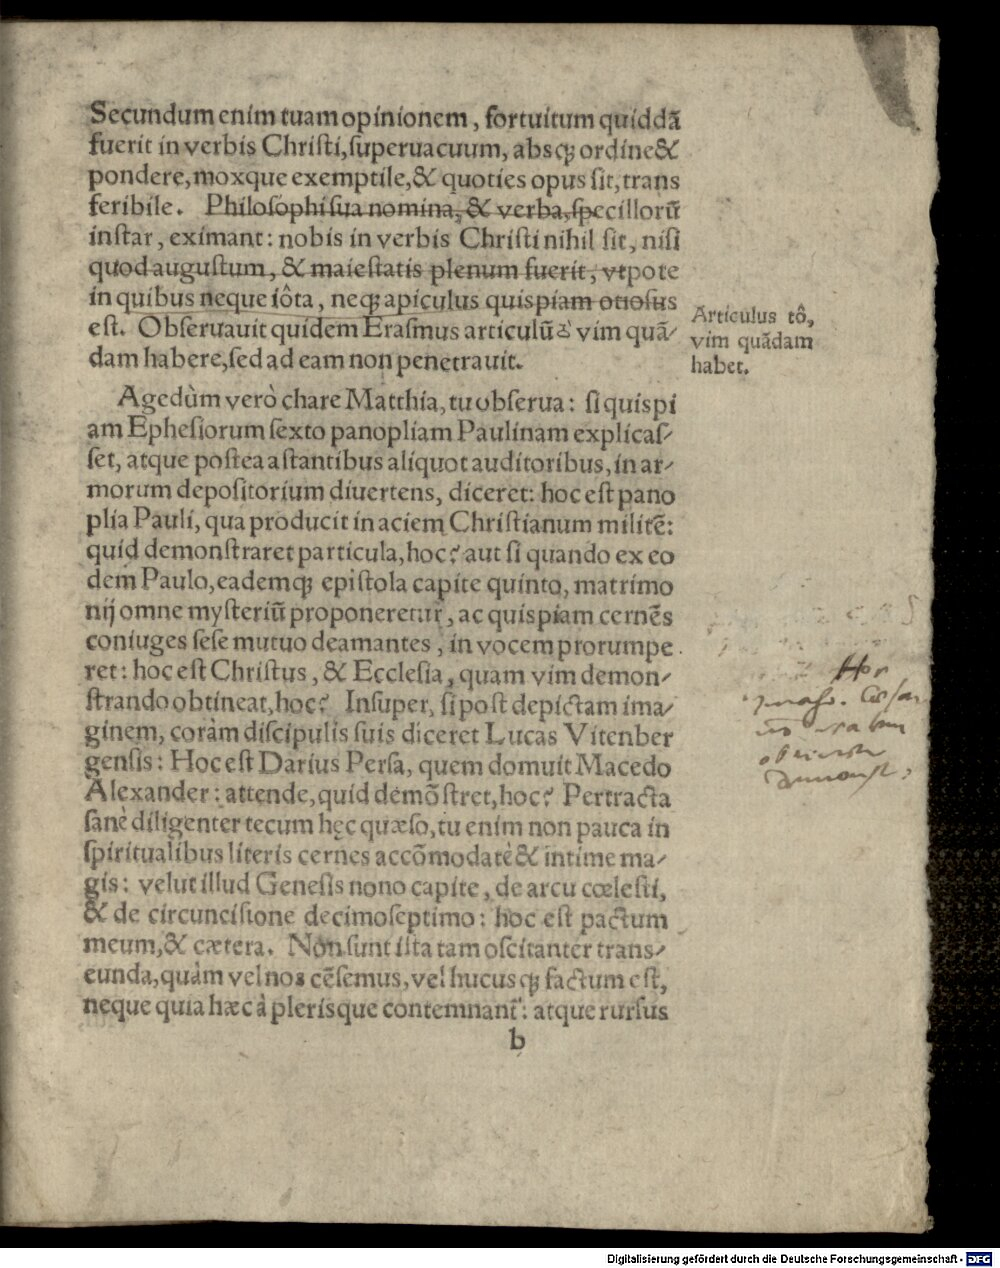 Secundum enim tuam opinionem, fortuitum quiddā
fuerit in verbis Christi, superuacuum, absq; ordine &
pondere, moxque exemptile, & quoties opus sit, trans
feribile. Philosophi sua nomina, & verba, specillorū
instar, eximant: nobis in verbis Christi nihil sit, nisi
quod augustum, & maiestatis plenum fuerit, vtpote
in quibus neque iôta, neq; apiculus quispiam otiosus
est. Obseruauit quidem Erasmus articulū vim quā⸗
dam habere, sed ad eam non penetrauit.
Articulus tô,
vim quādam
habet.
Agedùm verò chare Matthia, tu obserua: si quispi
am Ephesiorum sexto panopliam Paulinam explicas⸗
set, atque postea astantibus aliquot auditoribus, in ar⸗
morum depositorium diuertens, diceret: hoc est pano
plia Pauli, qua producit in aciem Christianum militē:
quid demonstraret particula, hoc? aut si quando ex eo
dem Paulo, eademq; epistola capite quinto, matrimo
nij omne mysteriū proponeretur, ac quispiam cernēs
coniuges sese mutuo deamantes, in vocem prorumpe
ret: hoc est Christus, & Ecclesia, quam vim demon⸗
strando obtineat, hoc? Insuper, si post depictam ima⸗
ginem, coràm discipulis suis diceret Lucas Vitenber
gensis: Hoc est Darius Persa, quem domuit Macedo
Alexander: attende, quid demōstret, hoc? Pertracta
sanè diligenter tecum hęc quæso, tu enim non pauca in
spiritualibus literis cernes accōmodatè & intime ma⸗
gis: velut illud Genesis nono capite, de arcu cœlesti,
& de circuncisione decimoseptimo: hoc est pactum
meum, & cætera. Non sunt ista tam oscitanter trans⸗
eunda, quàm vel nos cēsemus, vel hucusq; factum est,
neque quia hæc à plerisque contemnant᷑: atque rursus
b
Digitalisierung gefördert durch die Deutsche Forschungsgemeinschaft - DFG